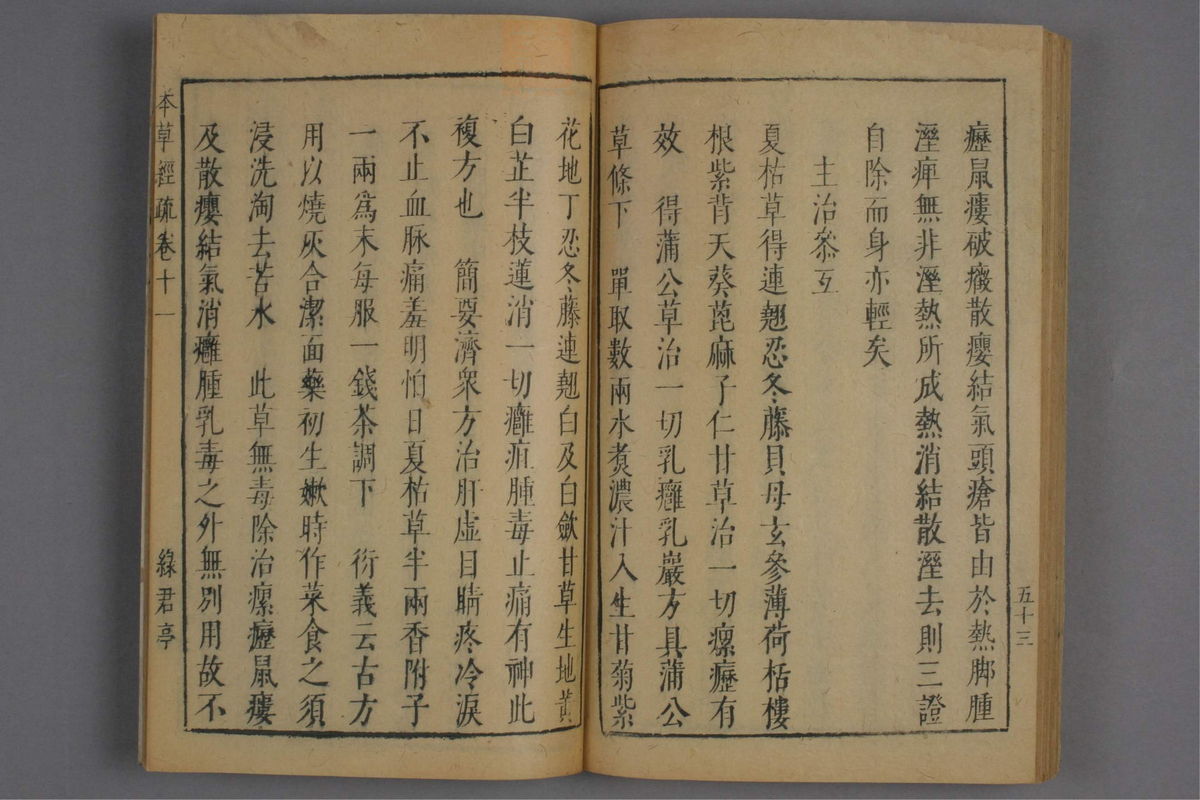 癧鼠瘻破癥散癭結氣頭瘡皆由於熱脚腫
溼痺無非溼熱所成熱消結散溼去則三證
自除而身亦輕矣
主治叅互
夏枯草得連翹忍冬藤貝母玄參薄荷栝樓
根紫背天葵蓖麻子仁甘草治一切瘰癧有
效　得蒲公草治一切乳癰乳巖方具蒲公
草條下　單取數兩水煑濃汁入生甘菊紫
五十三
花地丁忍冬藤連翹白及白歛甘草生地黃
白芷半枝蓮消一切癰疽腫毒止痛有神此
複方也　簡要濟衆方治肝虛目睛疼冷淚
不止血脉痛羞明怕日夏枯草半兩香附子
一兩爲末每服一錢茶調下　衍義云古方
用以燒灰合潔面藥初生嫰時作菜食之須
浸洗淘去苦水　此草無毒除治瘰癧鼠瘻
及散癭結氣消癰腫乳毒之外無別用故不
本草經疏卷十一　綠君亭